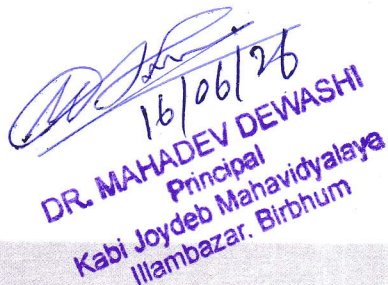 16/06/26
DR. MAHADEV DEWASHI
Principal
Kabi Joydeb Mahavidyalaya
Illambazar. Birbhum